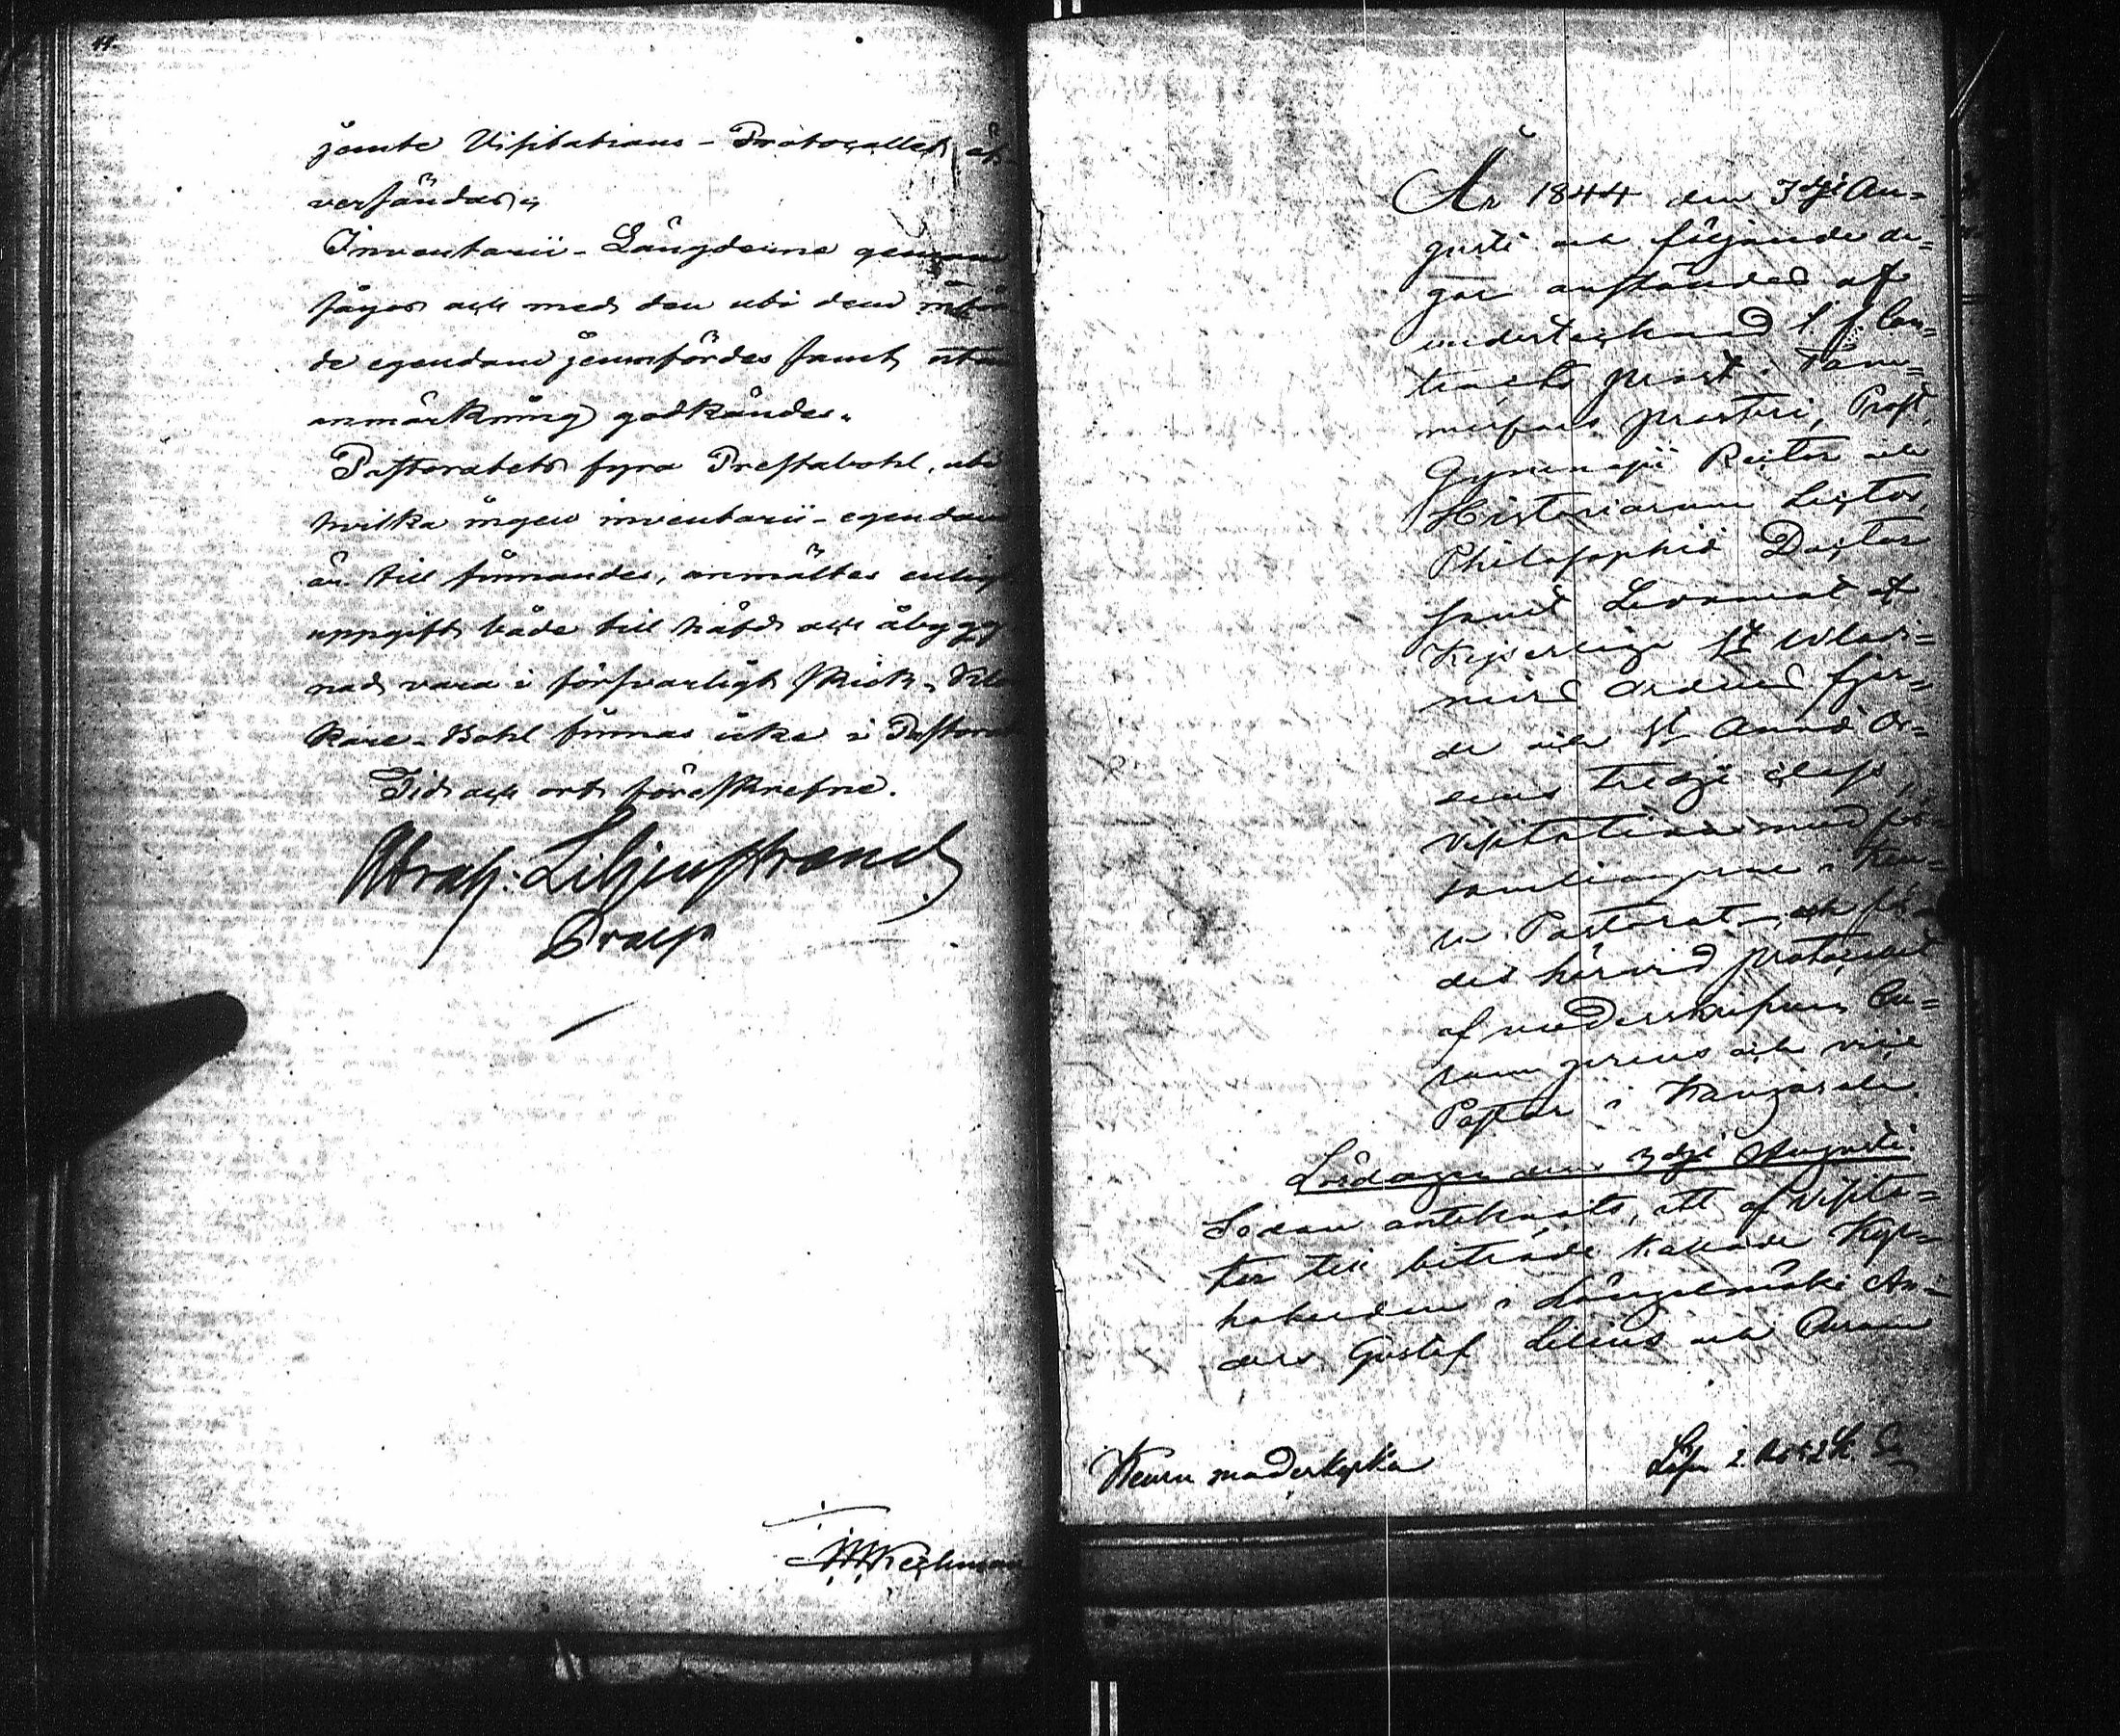 44.
jemte Visitations-Protocollet öf-
versändas.
Inventarii-Längderne genom
sågos och med den uti dem
de egendom jemnfördes samt utan
anmärkning godkändes.
Pastoratets fyra Prestabohl, uti
hvilka ingen inventarii-egendom
är till finnandes, anmältes enligt
uppgift både till häfd och åbygg
nad vara i försvarligt skick.
kare-Bohl finnas icke i Pastorat
Tid och ort föreskrefne.
Abrah: Liljenstrand
Praep

År 1844 den 3dje Au=
gusti och följande da=
gar anstäldes af
undertecknad t. f. Con=
tracts prost i Tam=
merfors prosteri, Prost,
Gymnasii Rector och
Historiarum Lector,
Philosophiæ Doctor
samt Ledamot af
Kejserliga St Wladi=
mirs Ordens fjer=
de och St Annæ Or=
dens tredje class,
visitation med för=
samlingarne i Keu=
ru Pastorat, och för=
des härvid protocollet
af underskrifven Cu=
ram gerens och vice
Pastor i Kangasala.
Lördagen den 3dje Augusti.
Sedan antecknats, att af Visita=
tor till biträde kallade Kyr=
koherden i Längelmäki An=
ders Gustaf Lilius och Curam
Keuru moderkyrka